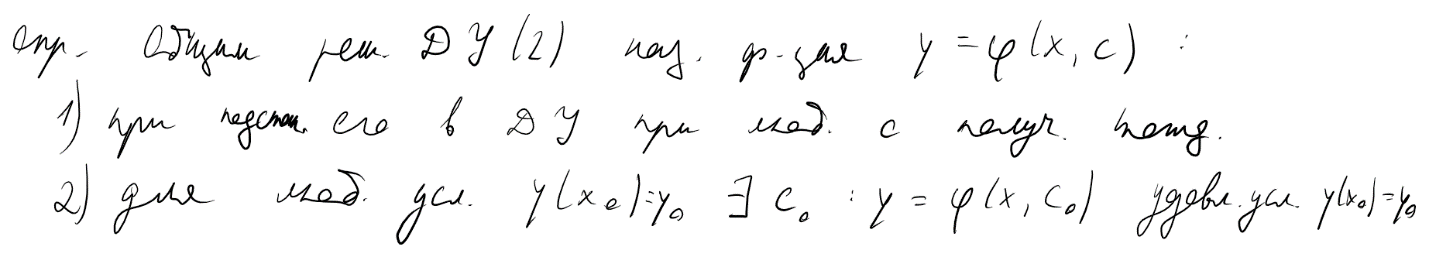 опр. Общим реш. ДУ (2) наз. ф-ция y = φ(x, c) :
1) при подстан. его в ДУ при люб. c получ. тожд.
2) для люб. усл. y(x₀)=y₀ ∃ c₀ : y = φ(x, c₀) удовл. усл. y(x₀)=y₀